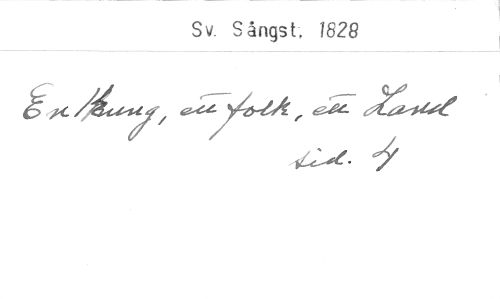 Sv. Sångst. 1828
En Kung, ett folk, ett Land
sid. 4